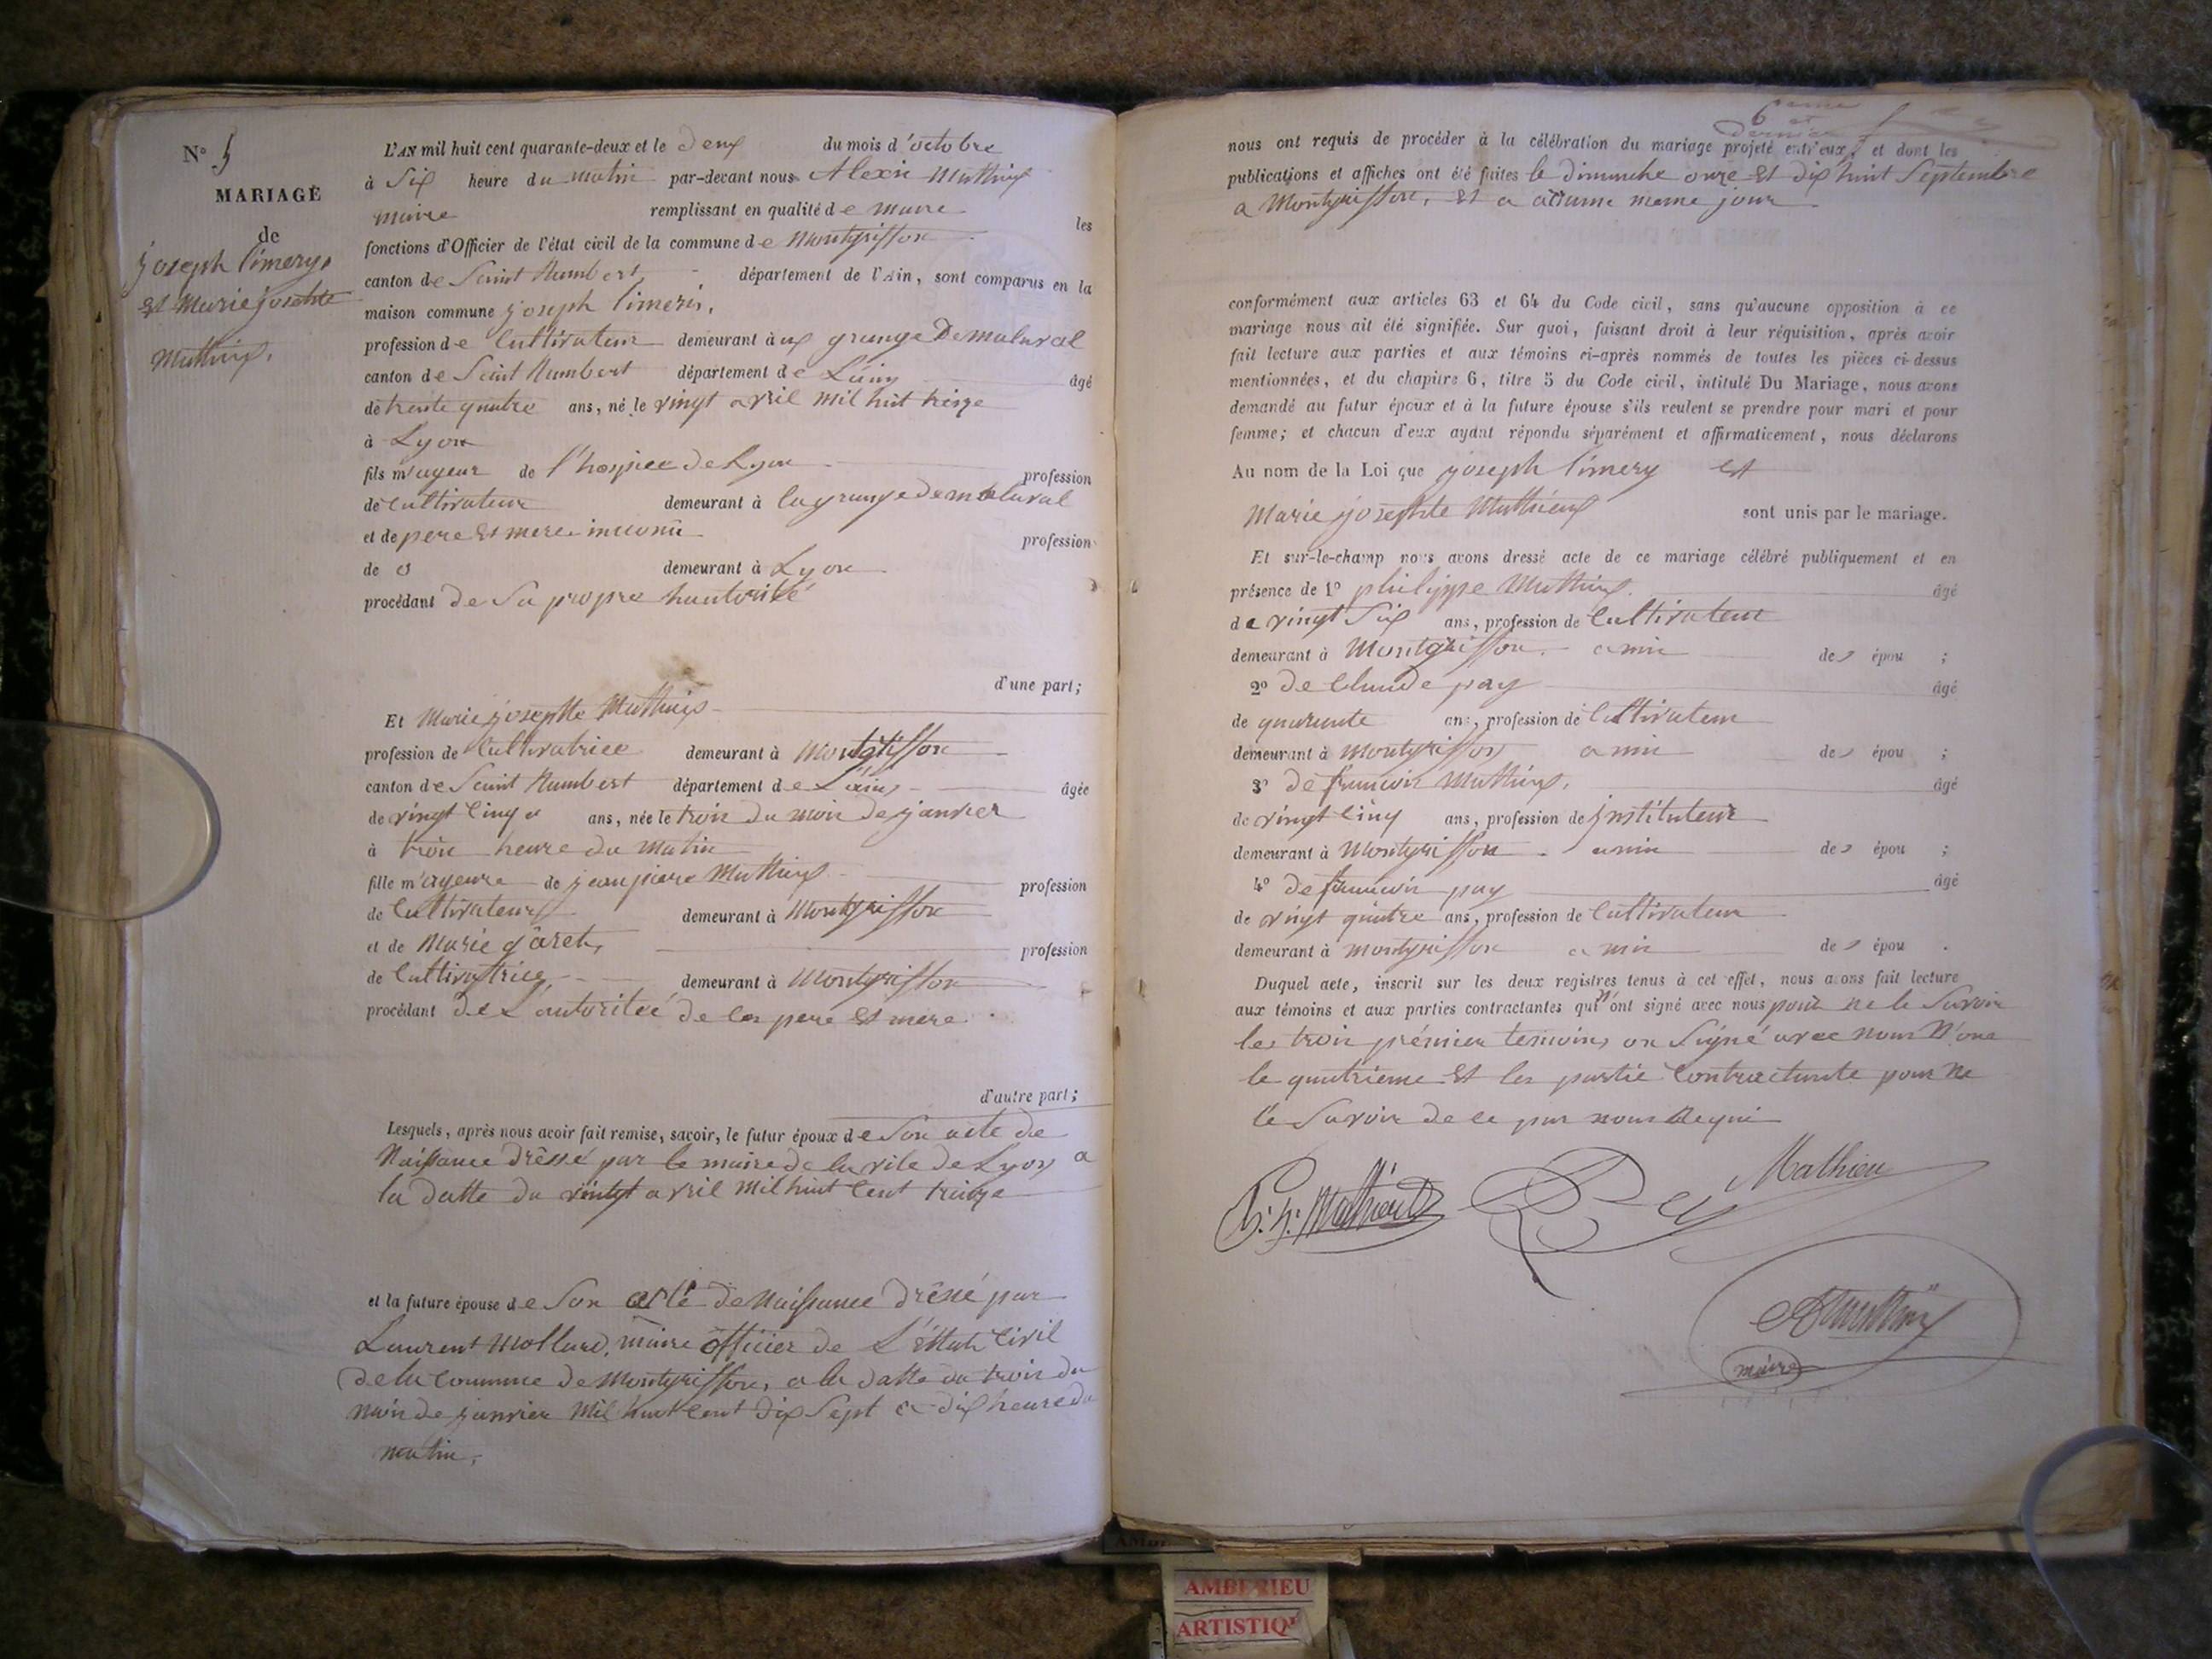 N° 5
MARIAGE
de
joseph limery,
et Marie josephte
Mathieux,
L'AN mil huit cent quarante-deux et le deux du mois d'octobre
à Six heure du matin par-devant nous Alexis Mathieux
maire remplissant en qualité de maire les
fonctions d'Officier de l'état civil de la commune de Montgriffon
canton de Saint Rambert, département de l'Ain, sont comparus en la
maison commune joseph limeris,
profession de Cultivateur demeurant à aux grange De malaval
canton de Saint Rambert département de L'ain âgé
de trente quatre ans, né le vingt avril mil huit treize
à Lyon
fils m'ageur de l'hospice de Lyon profession
de cultivateur demeurant à la grange de malaval
et de pere et mere inconnü profession
de o demeurant à Lyon
procédant de Sa propre hautorité
d'une part;
Et Marie josephte Mathieux
profession de Cultivatrice demeurant à Montgriffon
canton de Saint Rambert département de L'ain âgée
de vingt Cinq ans, née le trois du mois de janvier
à trois heure du matin
fille m'ageure de jean piere Mathieux profession
de Cultivateur demeurant à Montgriffon
et de Marie profession
de Cultivatrice, demeurant à Montgriffon
procédant de L'autoritée de les pere et mere.
d'autre part;
Lesquels, après nous avoir fait remise, savoir, le futur époux de Son acte de
Naissance dréssé par le maire de la vile de Lyon a
la datte du vingt avril mil huit Cent treize
et la future épouse de Son acte de Naissance drésé par
Laurent Mollard, maire officier de L'éttat Civil
de la Commune de Montgriffon, a la datte du trois du
mois de janvier Mil huit Cent dix Sept a dix heure du
matin,
6
dernier
nous ont requis de procéder à la célébration du mariage projeté entr'eux, et dont les
publications et affiches ont été faites le dimanche onze et dix huit Septembre
a Montgriffon, et a meme jour
conformément aux articles 63 et 64 du Code civil, sans qu'aucune opposition à ce
mariage nous ait été signifiée. Sur quoi, faisant droit à leur réquisition, après avoir
fait lecture aux parties et aux témoins ci-après nommés de toutes les pièces ci-dessus
mentionnées, et du chapitre 6, titre 5 du Code civil, intitulé Du Mariage, nous avons
demandé au futur époux et à la future épouse s'ils veulent se prendre pour mari et pour
femme; et chacun d'eux ayant répondu séparément et affirmativement, nous déclarons
Au nom de la Loi que joseph limery et
Marie josephte Mathieux sont unis par le mariage.
Et sur-le-champ nous avons dressé acte de ce mariage célébré publiquement et en
présence de 1° philippe Mathieux. âgé
de vingt Six ans, profession de Cultivateur
demeurant à Montgriffon. amis des épou ;
2° de Claude pay âgé
de quarante ans, profession de Cultivateur
demeurant à Montgriffon amis des épou ;
3° de francois Mathieux, âgé
de vingt Cinq ans, profession de jnstituteur
demeurant à Montgriffon. amis des épou ;
4° de francois pay âgé
de vingt quatre ans, profession de Cultivateur
demeurant à montgriffon amis des épou .
Duquel acte, inscrit sur les deux registres tenus à cet effet, nous avons fait lecture
aux témoins et aux parties contractantes qui n'ont signé avec nous pour ne le Savoir
les trois prémier temoins on Signé avec nous N'one
le quatrieme et les partie Contractante pour ne
le Savoir de ce par nous Requi
Mathieu
Mathieu
maire